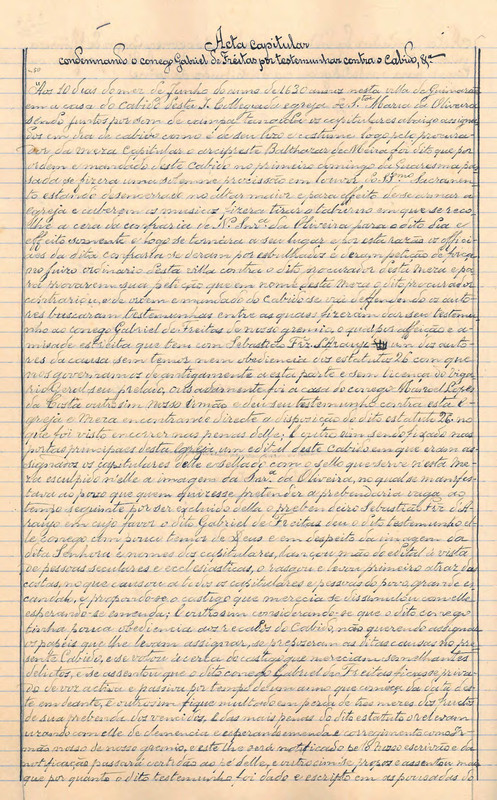 Acta capitular
condemnando o conego Gabriel de Freitas por testemunhar contra o Cabido, &ª
Aos 10 dias do mez de junho do anno de 1630 annos nesta villa de Guimarães
em a casa do Cabido desta I. Collegiada egreja de S.ta Maria da Oliveira
sendo juntos por som de campa tangida os capitulares abaixo assigna
dos em dia de cabido como é de seu uso e costume logo pelo procura
dor da meza Capitular o arcypreste Balthazar de Meira foi dito que por
ordem e mandado deste Cabido no primeiro domingo da Quaresma pas
sada se fizera uma solemne procissão em louvor do S.mo Sacramen
to estando desencerrado no altar maior e para effeito de se armar a
egreja e caberem os musicos fizera tirar o caburno em que se reco
lhe a cera da confraria de N. Snr.ª da Oliveira para o dito dia e
effeito somente e logo se tornára a seu lugar e por esta razão os offici
aes da dita confraria se deram por esbulhados e deram petição de força
no juizo ordinario desta villa contra o dito procurador desta Meza e pa
ra provarem sua petição que em nome desta Meza o dito procurador
contrariou, e de ordem e mandado do Cabido se vai defendendo os auto
res buscaram testemunhas entre as quaes fizeram dar seu testemu
nho ao conego Gabriel de Freitas do nosso gremio, o qual por affeição e a
misade estreita que tem com Sebastião Frz. d'Araujo um dos auto
res da causa sem temor nem obediencia dos estatutos 26 com que
nos governamos de antigamente a esta parte e sem licença do Viga
rio Geral seu prelado, ousadamente foi a casa do conego Manoel Lopes
da Costa outrosim nosso irmão e deu seu testemunho contra esta E
greja e Meza encontrando directe a disposição do dito estatuto 26 no
que foi visto encorrer nas penas delle; E outro sim sendo fixado nas
portas principaes desta Egreja, um edital deste Cabido em que eram as
signados os capitulares delle e sellado com o sello que serve nesta me
za esculpido n'elle a imagem da Snr.ª da Oliveira, no qual se manifes
tava ao povo que quem quizesse pretender a prebendaria vaga ao
tempo seguinte por ser excluido della o prebendeiro Sebastião Frz d'A
raujo em cujo favor o dito Gabriel de Freitas deu o dito testemunho el
le conego com pouco temor de Deus e em despeito da imagem da
dita Senhora e nomes dos capitulares, lançou mão do edital á vista
de pessoas seculares e ecclesiasticas, o rasgou e levou primeiro atraz das
costas, no que causou a todos os capitulares e pessoas do povo grande es
candalo, e propondo-se o castigo que merecia se dissimulou com elle
esperando-se emenda; E outrosim considerando-se que o dito conego
tinha pouca obediencia aos recados do Cabido, não querendo assignar
os papeis que lhe levam assignar, se propozeram as ditas causas no pre
sente Cabido, e se votou ácerca do castigo que mereciam semelhantes
delictos, e se assentou que o dito conego Gabriel de Freitas ficasse priva
do de voz activa e passiva por tempo d'um anno que começa da data des
te em deante, E outrosim fique multado em perda de tres mezes dos fructos
de sua prebenda dos vencidos, E das mais penas do dito estatuto o relevam
uzando com elle de clemencia e esperando emenda e corregimento como Ir
mão nosso de nosso gremio, e este lhe será notificado pelo Nosso escrivão e da
notificação passará certidão ao pé delle, e outro sim se propoz e assentou mais
que por quanto o dito testemunho foi dado e escripto em as pousadas do